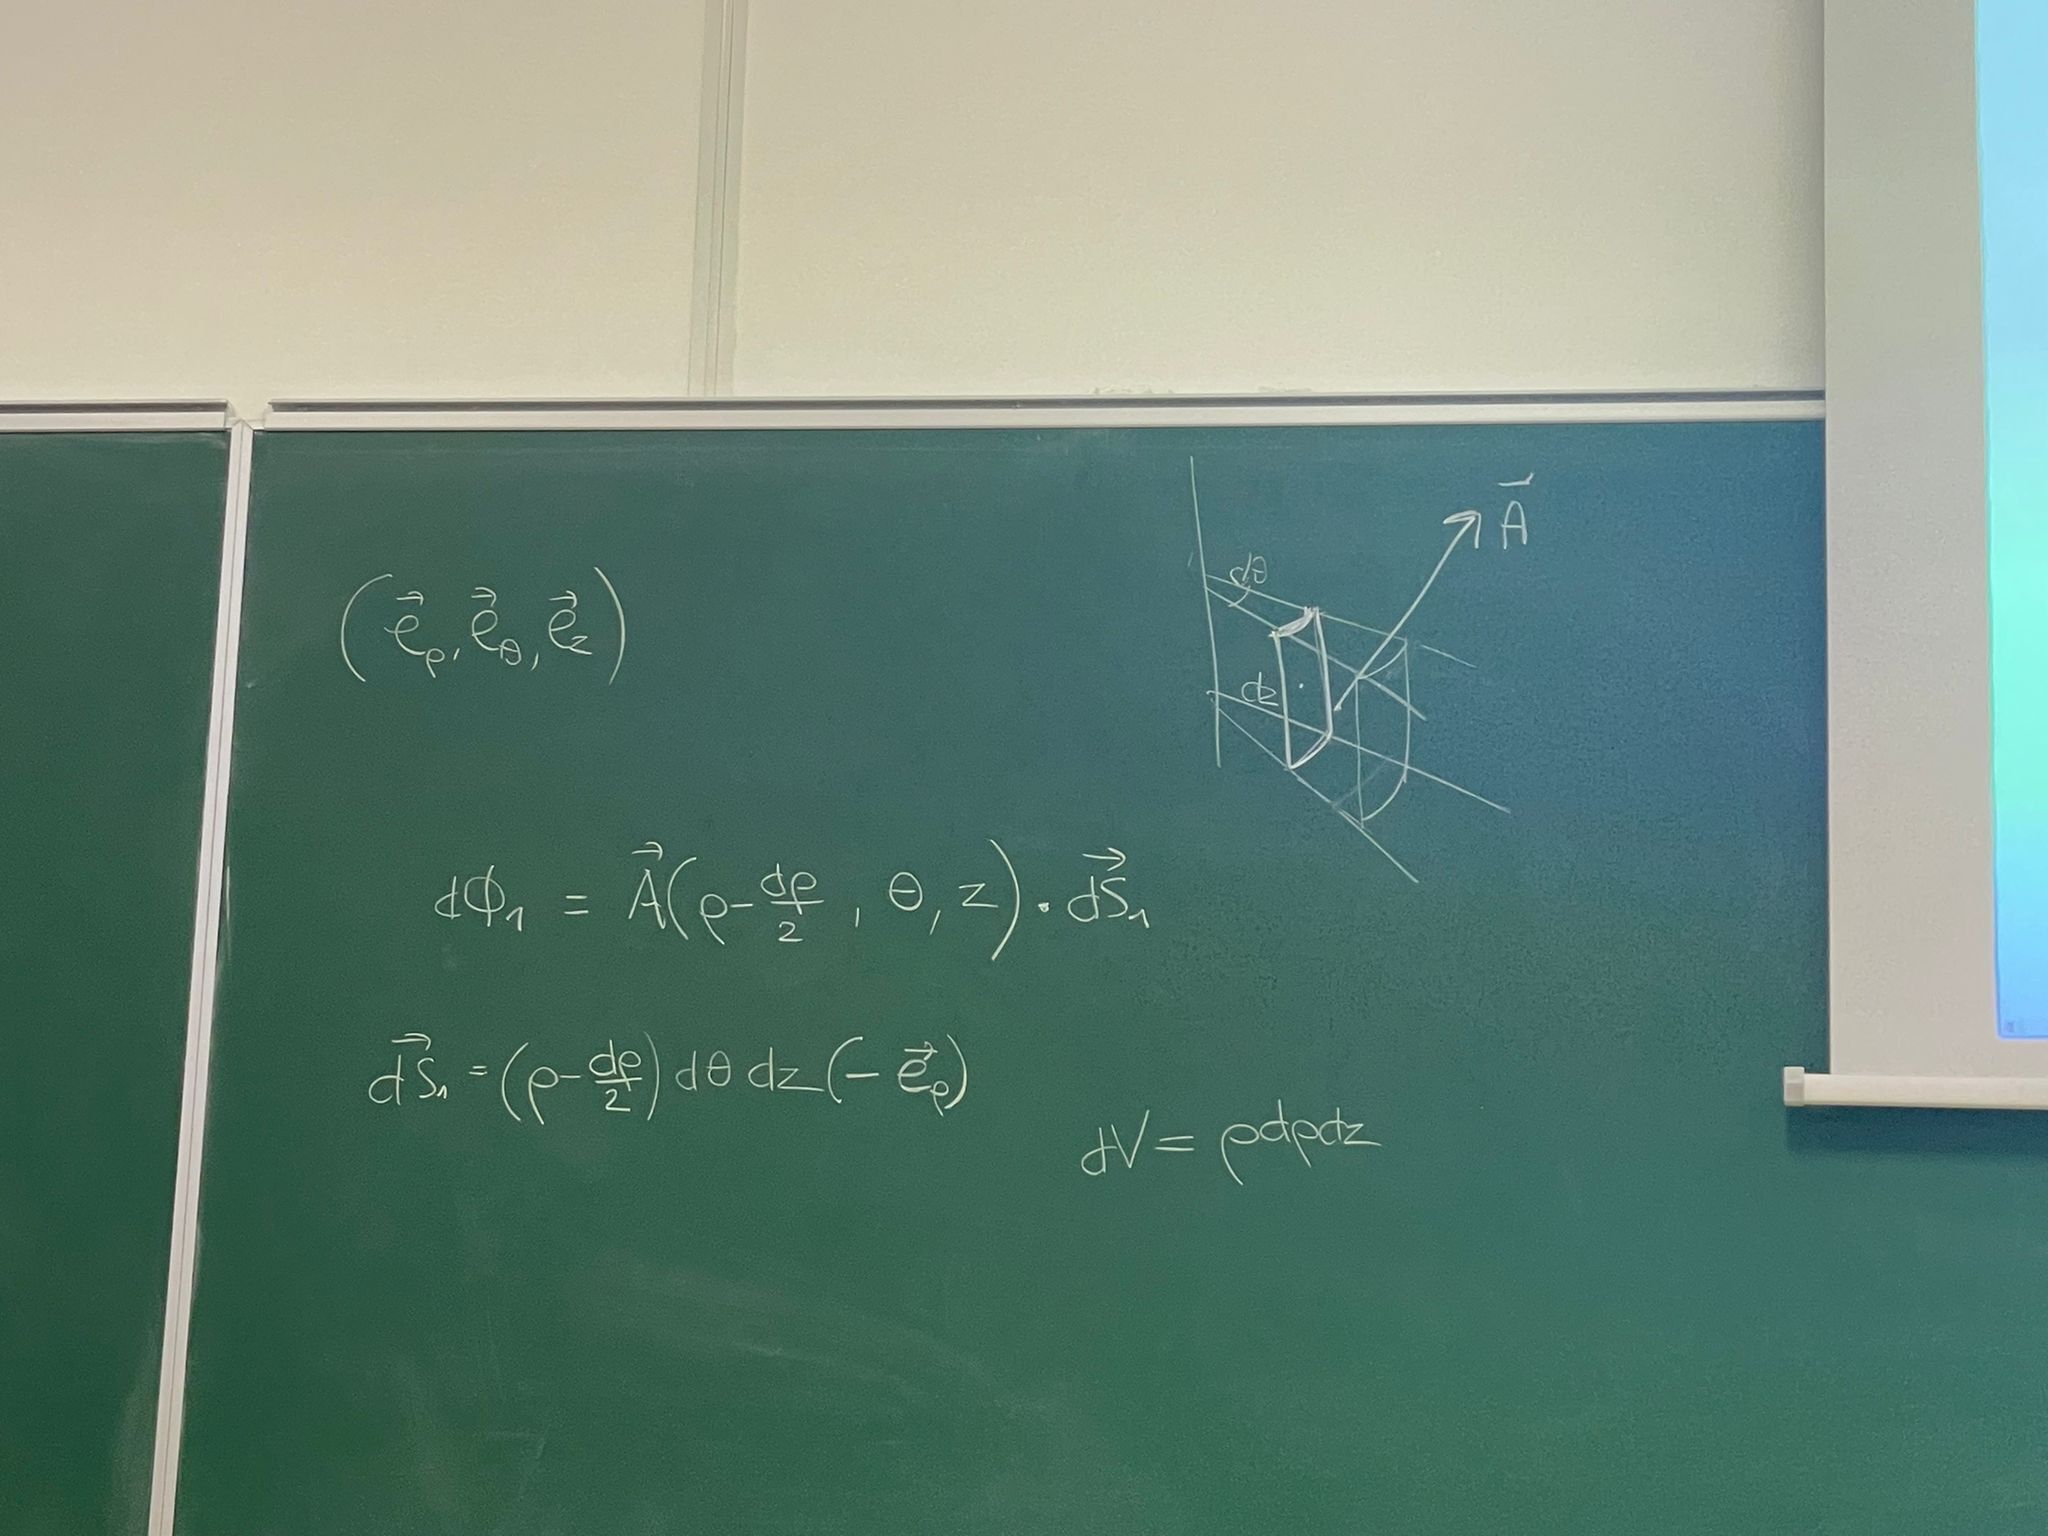 (e⃗ρ, e⃗θ, e⃗z)
A⃗
dθ
dz
dΦ₁ = A⃗(ρ - dρ/2, θ, z) · dS⃗₁
dS⃗₁ = (ρ - dρ/2) dθ dz (- e⃗ρ)
dV = ρdρdz